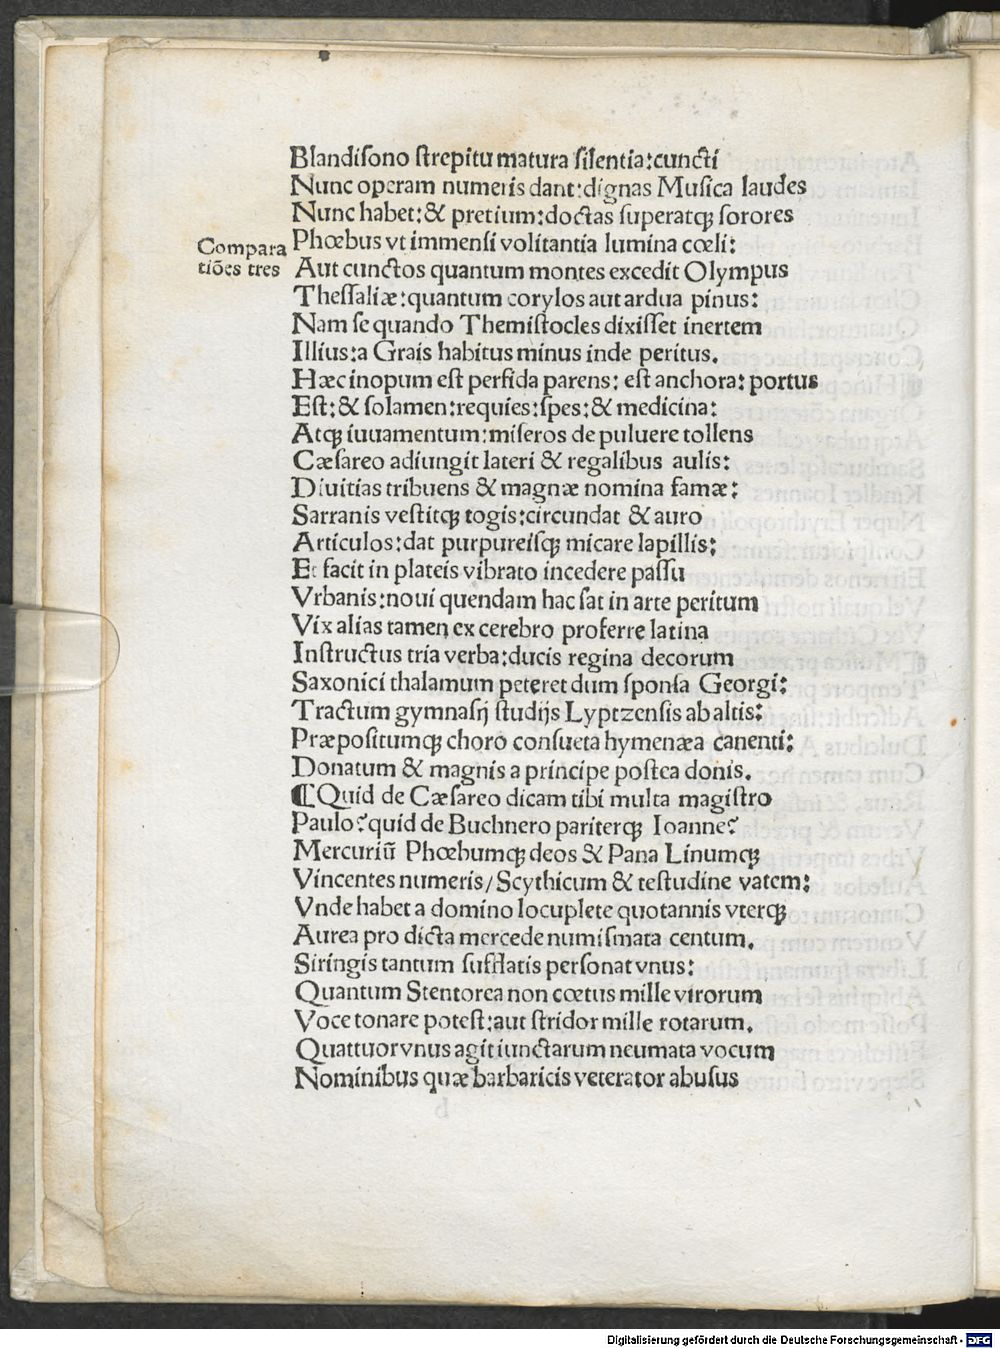 Blandisono strepitu matura silentia:cuncti
Nunc operam numeris dant:dignas Musica laudes
Nunc habet:& pretium:doctas superatqꝫ sorores
Compara
tiões tres
Phœbus vt immensi volitantia lumina cœli:
Aut cunctos quantum montes excedit Olympus
Thessaliæ:quantum corylos aut ardua pinus:
Nam se quando Themistocles dixisset inertem
Illius:a Grais habitus minus inde peritus.
Hæc inopum est perfida parens: est anchora: portus
Est:& solamen:requies:spes:& medicina:
Atqꝫ iuuamentum:miseros de puluere tollens
Cæsareo adiungit lateri & regalibus aulis:
Diuitias tribuens & magnæ nomina famæ:
Sarranis vestitqꝫ togis:circundat & auro
Articulos:dat purpureisqꝫ micare lapillis:
Et facit in plateis vibrato incedere passu
Vrbanis:noui quendam hac sat in arte peritum
Vix alias tamen ex cerebro proferre latina
Instructus tria verba:ducis regina decorum
Saxonici thalamum peteret dum sponsa Georgi:
Tractum gymnasij studijs Lyptzensis ab altis:
Præpositumqꝫ choro consueta hymenæa canenti:
Donatum & magnis a principe postea donis.
⁋Quid de Cæsareo dicam tibi multa magistro
Paulo?quid de Buchnero pariterqꝫ Ioanne?
Mercuriū Phœbumqꝫ deos & Pana Linumqꝫ
Vincentes numeris/Scythicum & testudine vatem:
Vnde habet a domino locuplete quotannis vterqꝫ
Aurea pro dicta mercede numismata centum.
Siringis tantum sufflatis personat vnus:
Quantum Stentorea non cœtus mille virorum
Voce tonare potest:aut stridor mille rotarum.
Quattuor vnus agit iunctarum neumata vocum
Nominibus quæ barbaricis veterator abusus
Digitalisierung gefördert durch die Deutsche Forschungsgemeinschaft - DFG